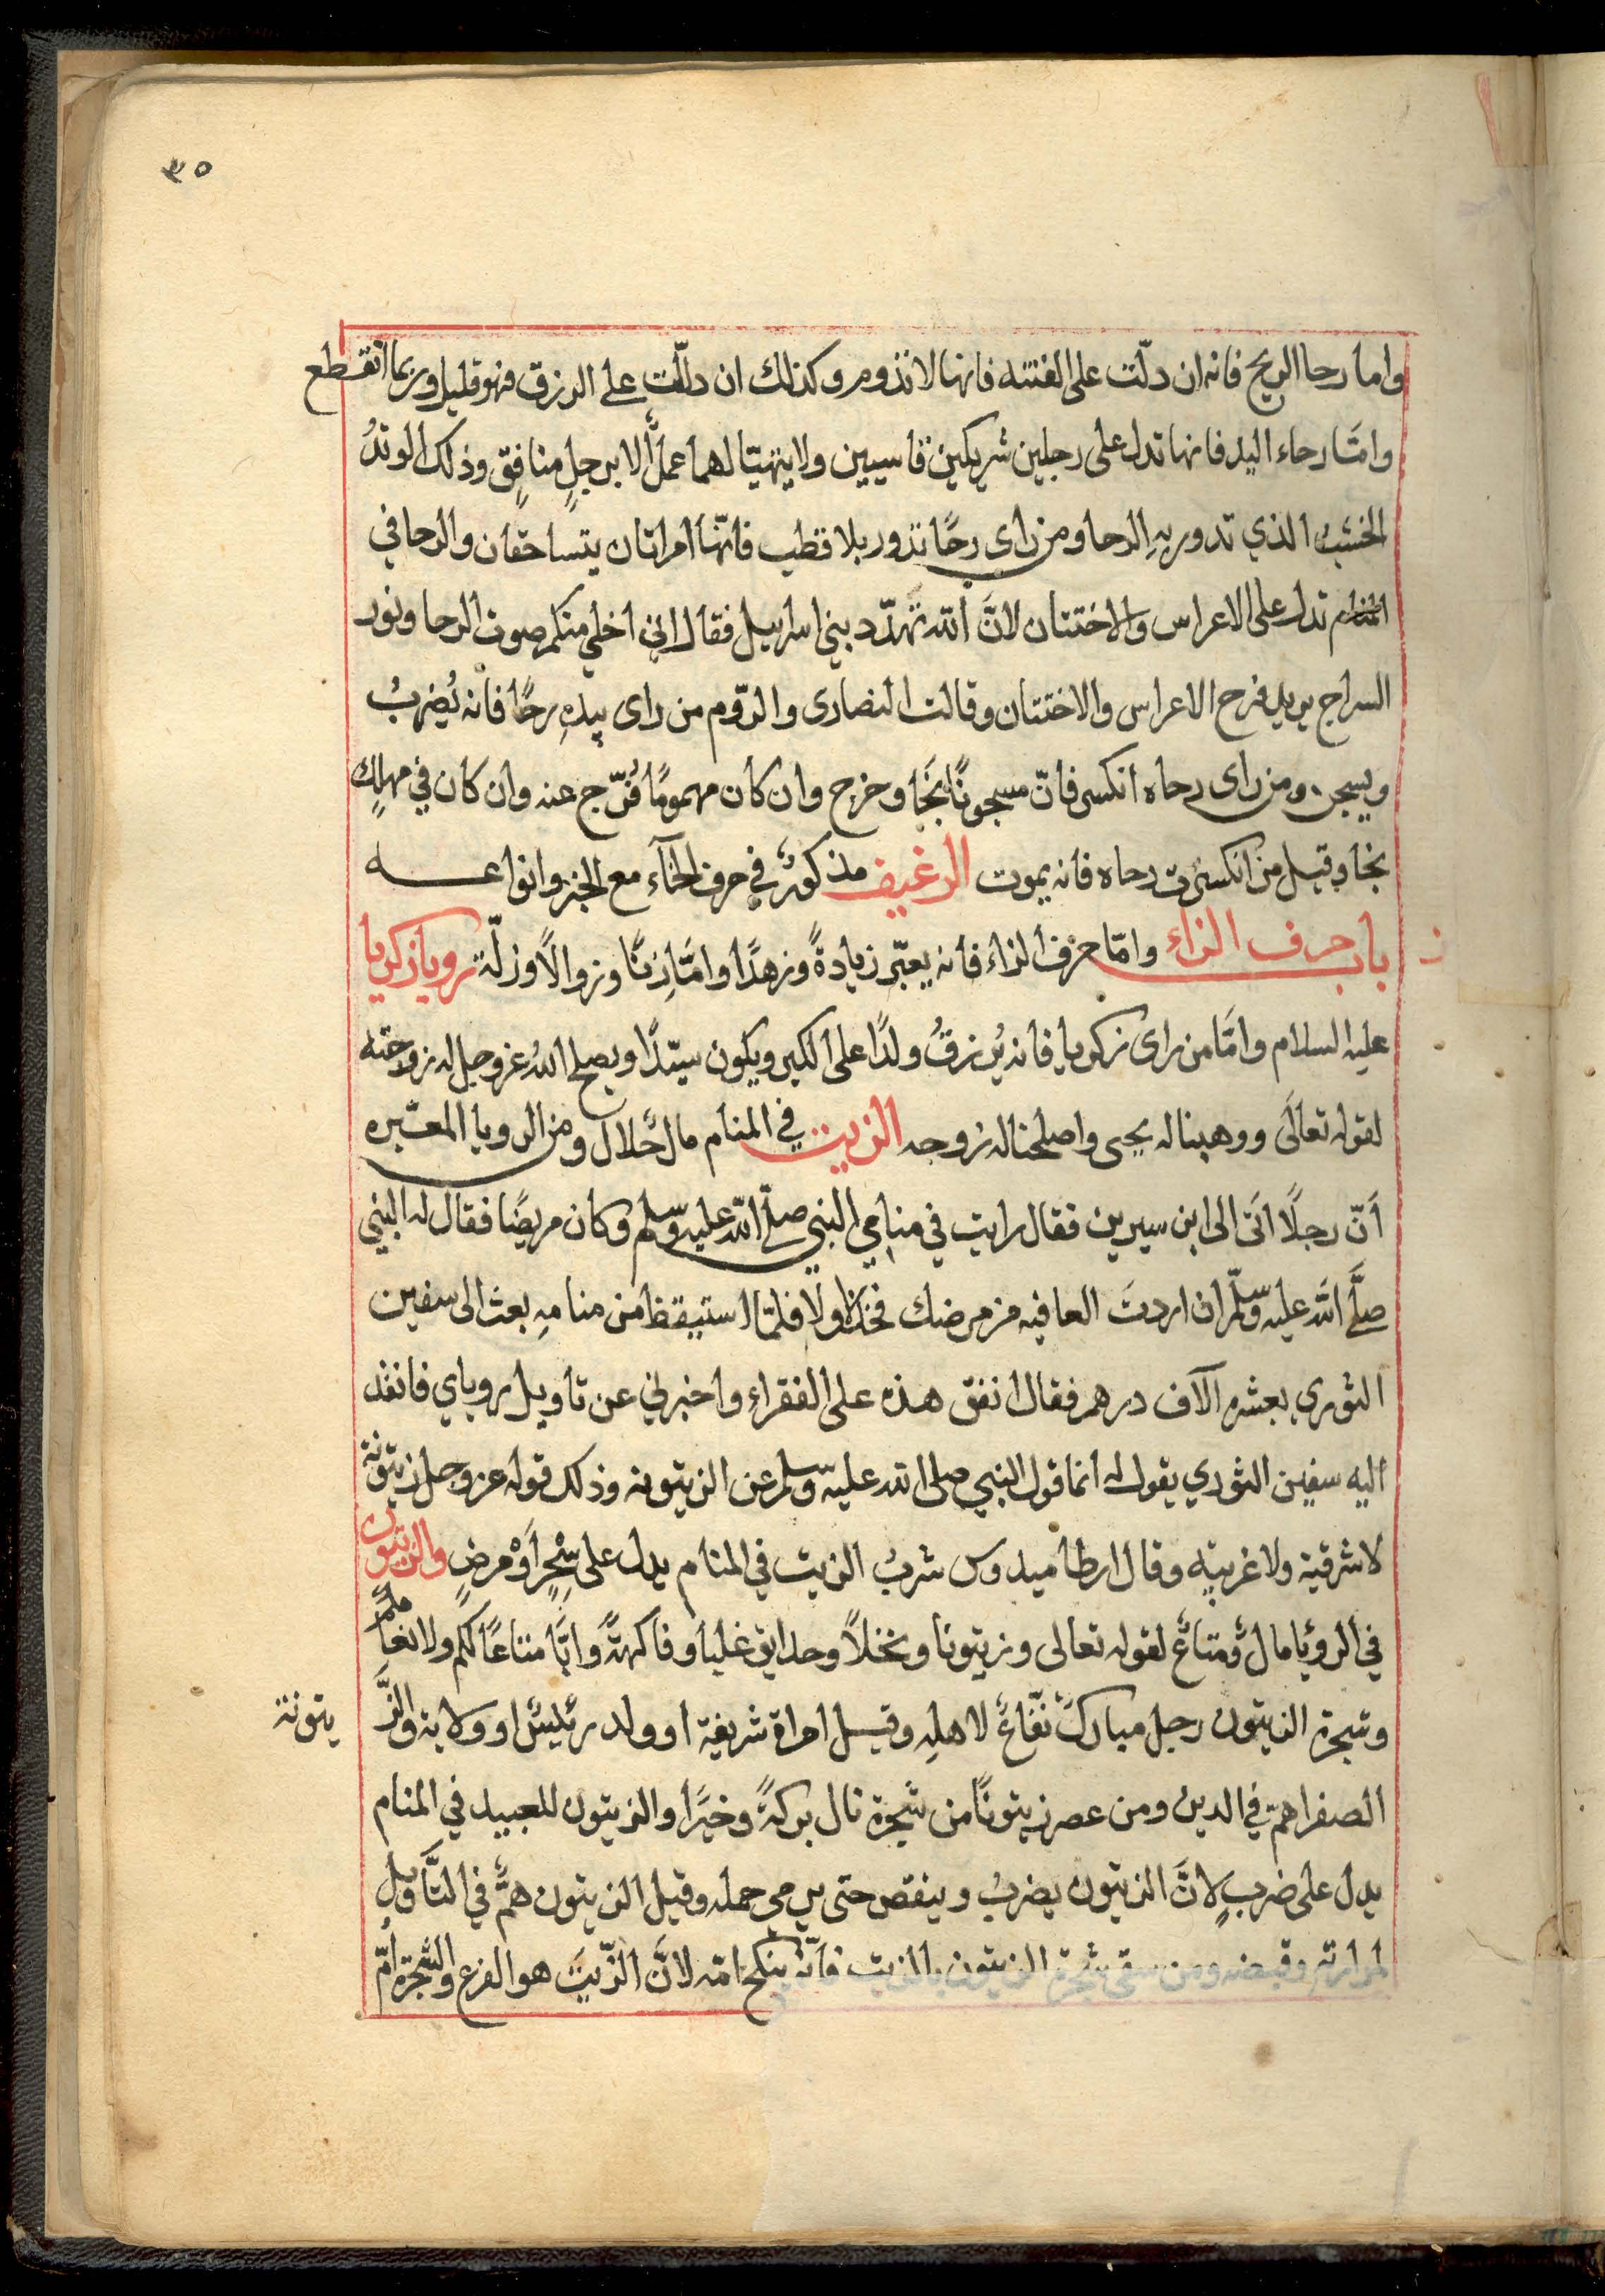 ٣٥
واما رحا الريح فانه ان دلّت على الفتنه فانها لا تدوم وكذلك ان دلّلت على الرزق فهو قليل وربما انقطع
وامَّا رحاء اليد فانها تدل على رجلين شريكين قاسيين ولا يتهيّا لهما عملٌ الا برجلٍ منافِقٍ وذلك الوتدُ
الخشب الذي تدور بهِ الرحا ومن راى رحًا تدور بلا قطب فانّها امراتان يتساحقان والرحا في
المنام تدل على الاعراس والاختتان لانَّ اللّه تهدّد بني اسراييل فقال اني اخلي منكم صوت الرحا ونور
السراج يريد فرح الاعراس والاختتان وقالت النصارى والرّوم من راى بيدهِ رحًا فانه يُضربُ
ويسجن ومن راى رحاه انكسر فانّ مسجونًا نجَا وخرج وان كان مهمومًا فُرّج عنه وان كان في مهلكٍ
نجا وقيل من انكسرت رحاه فانه يموت الرغيف مذكورٌ في حرف الخآء مع الخبز وانواعه
ز
باب حرف الزاء وامّا حرف الزاء فانه يعبّر زيادةً وزهدًا وامَّا زنًا وزوالًا وزلّة رويا زكريا
عليه السلام وامَّا من راى زكريا فانه يُرزقُ ولدًا على الكبر ويكون سيّدًا ويصلح اللهُ عز وجل له زوجته
لقوله تعالَى ووهبنا له يحيى واصلحنا له زوجه الزيت في المنام مال حلال ومن الرويا المعبّره
اَنّ رجلًا اتَى الى ابن سيرين فقال رايت في منامي النبي صلّى اللّه عليه وسلم وكان مريضًا فقال له النبي
صلَّى اللّه عليه وسلّم ان اردتَ العافيه من مرضك فخذ لا ولا فلمّا استيقظ من منامهِ بعث الى سفين
الثوري بعشره الآف درهم فقال انفق هذه على الفقراء واخبرني عن تاويل روياي فانفذ
اليه سفين الثوري يقول له انما قول النبي صلى الله عليه وسلم عن الزيتونه وذلك قوله عز وجل زيتونة
لا شرقية ولا غربيّه وقال ارطاميدوس شربُ الزيت في المنام يدل على سِحْرٍ اَوْ مرضٍ والزيتون
في الرؤيا مالٌ ومتاعٌ لقوله تعالى وزيتونا ونخلاً وحدايق غلبا وفاكهةً وابًّا متاعًا لكم ولانعامكم
وشجرة الزيتون رجل مبارك نفّاعٌ لاهلهِ وقيل امراة شريفة او ولد رئيسٌ او ولاية والزَّ
يتونة
الصفرا همّ في الدين ومن عصر زيتونًا من شجرة نال بركةً وخيرًا والزيتون للعبيد في المنام
يدل على ضربٍ لانَّ الزيتون يضربُ وينفض حتى يرمى حمله وقيل الزيتون همٌّ في التَّاويل
لمرارته وقبضه ومن سقى شجرة الزيتون بالزيت فانّه ينكح امّه لانَّ الزّيتَ هو الفرع والشجرة امّ